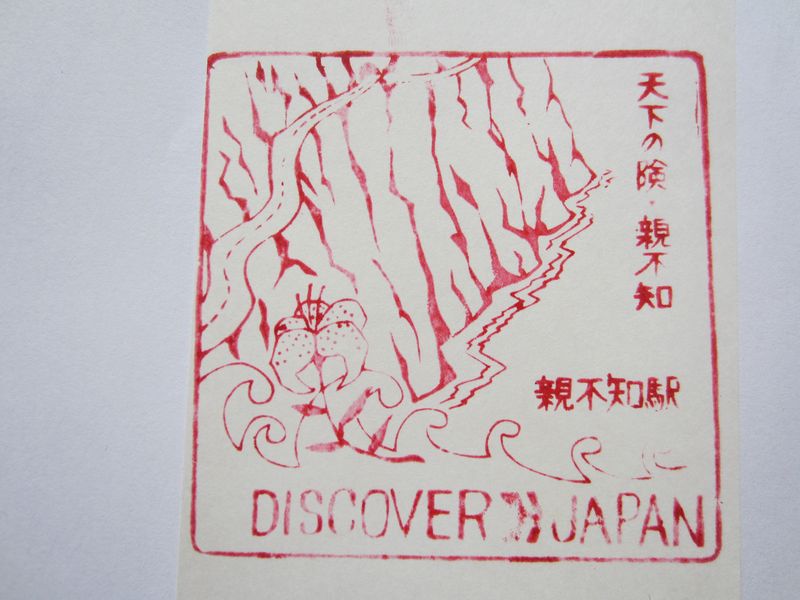 天下の険・親不知
親不知駅
DISCOVER JAPAN